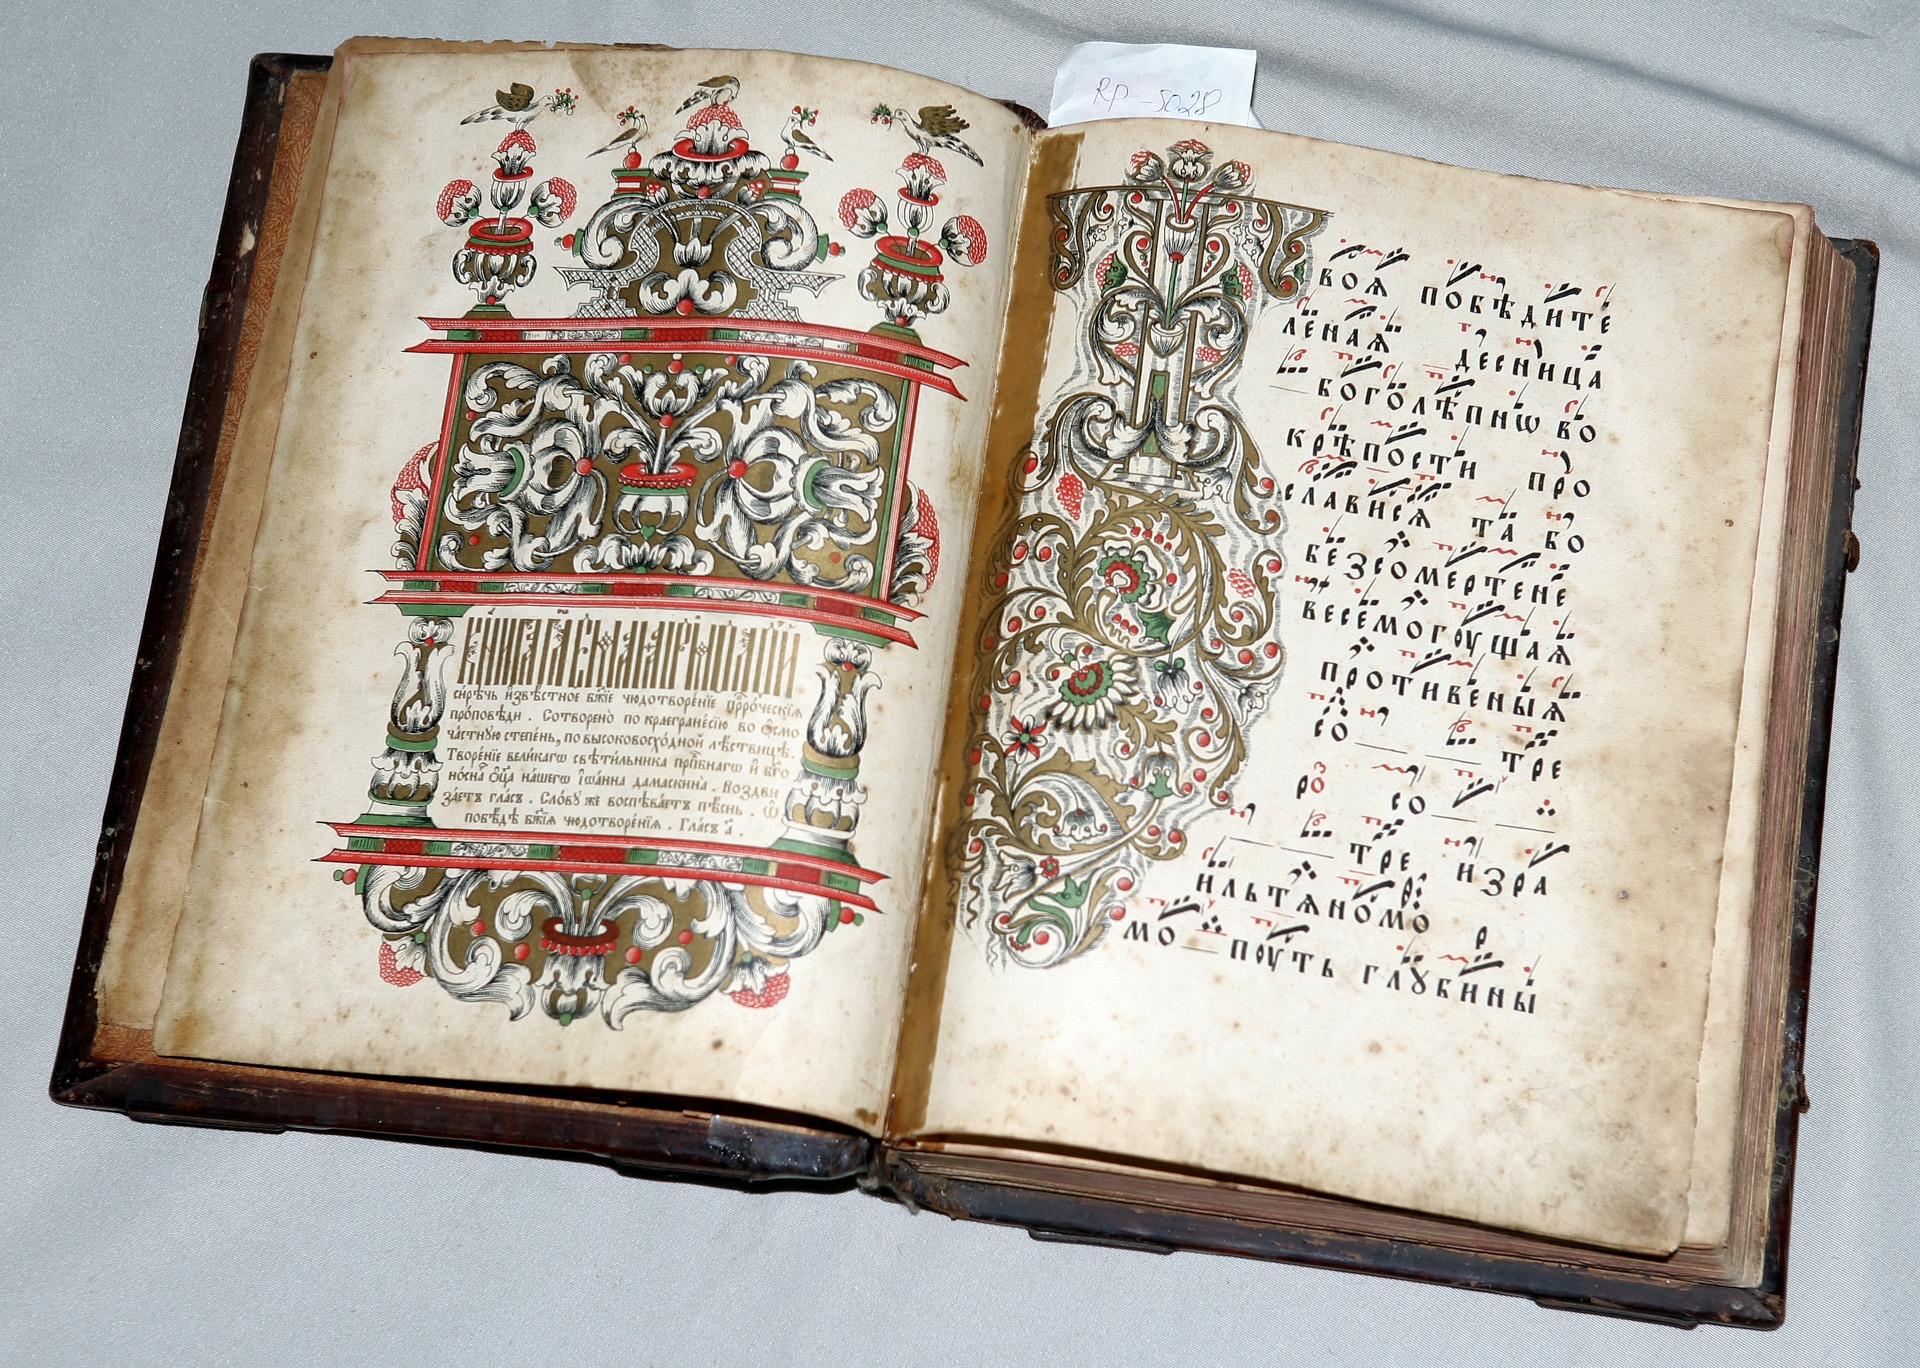 RP-5028
Книга гл҃емая ирмологий
сирѣчь извѣстное бж҃іе чюдотворе́нїе прⷪ҇ро́ческїѧ
про́повѣди . Сотворено̀ по краегране́сїю во ѻ҆смо
ча́стную степе́нь, по высоковосхо́дной лѣ́ствицѣ .
Творе́нїе вели́кагѡ свѣти́льника прпⷣбнагѡ и҆ бг҃о
но́сна ѻ҆ц҃а̀ на́шегѡ і҆ѡа́нна дамаскина̀ . Воздви
за́етъ гла́съ . Сло́ву же воспѣва́етъ пѣ́снь . ѡ҆
побѣ́дѣ бж҃їѧ чюдотворе́нїѧ . Гла́съ а҃ .
воѧ побѣдите
лёнаѧ десница
боголѣпнѡ во
крѣпости про
слависѧ та бо
безсомертене
весемогоущаѧ
противеныѧ
со тре
ро со
тре изра
ильтѧномо
мо поуть глꙋбины